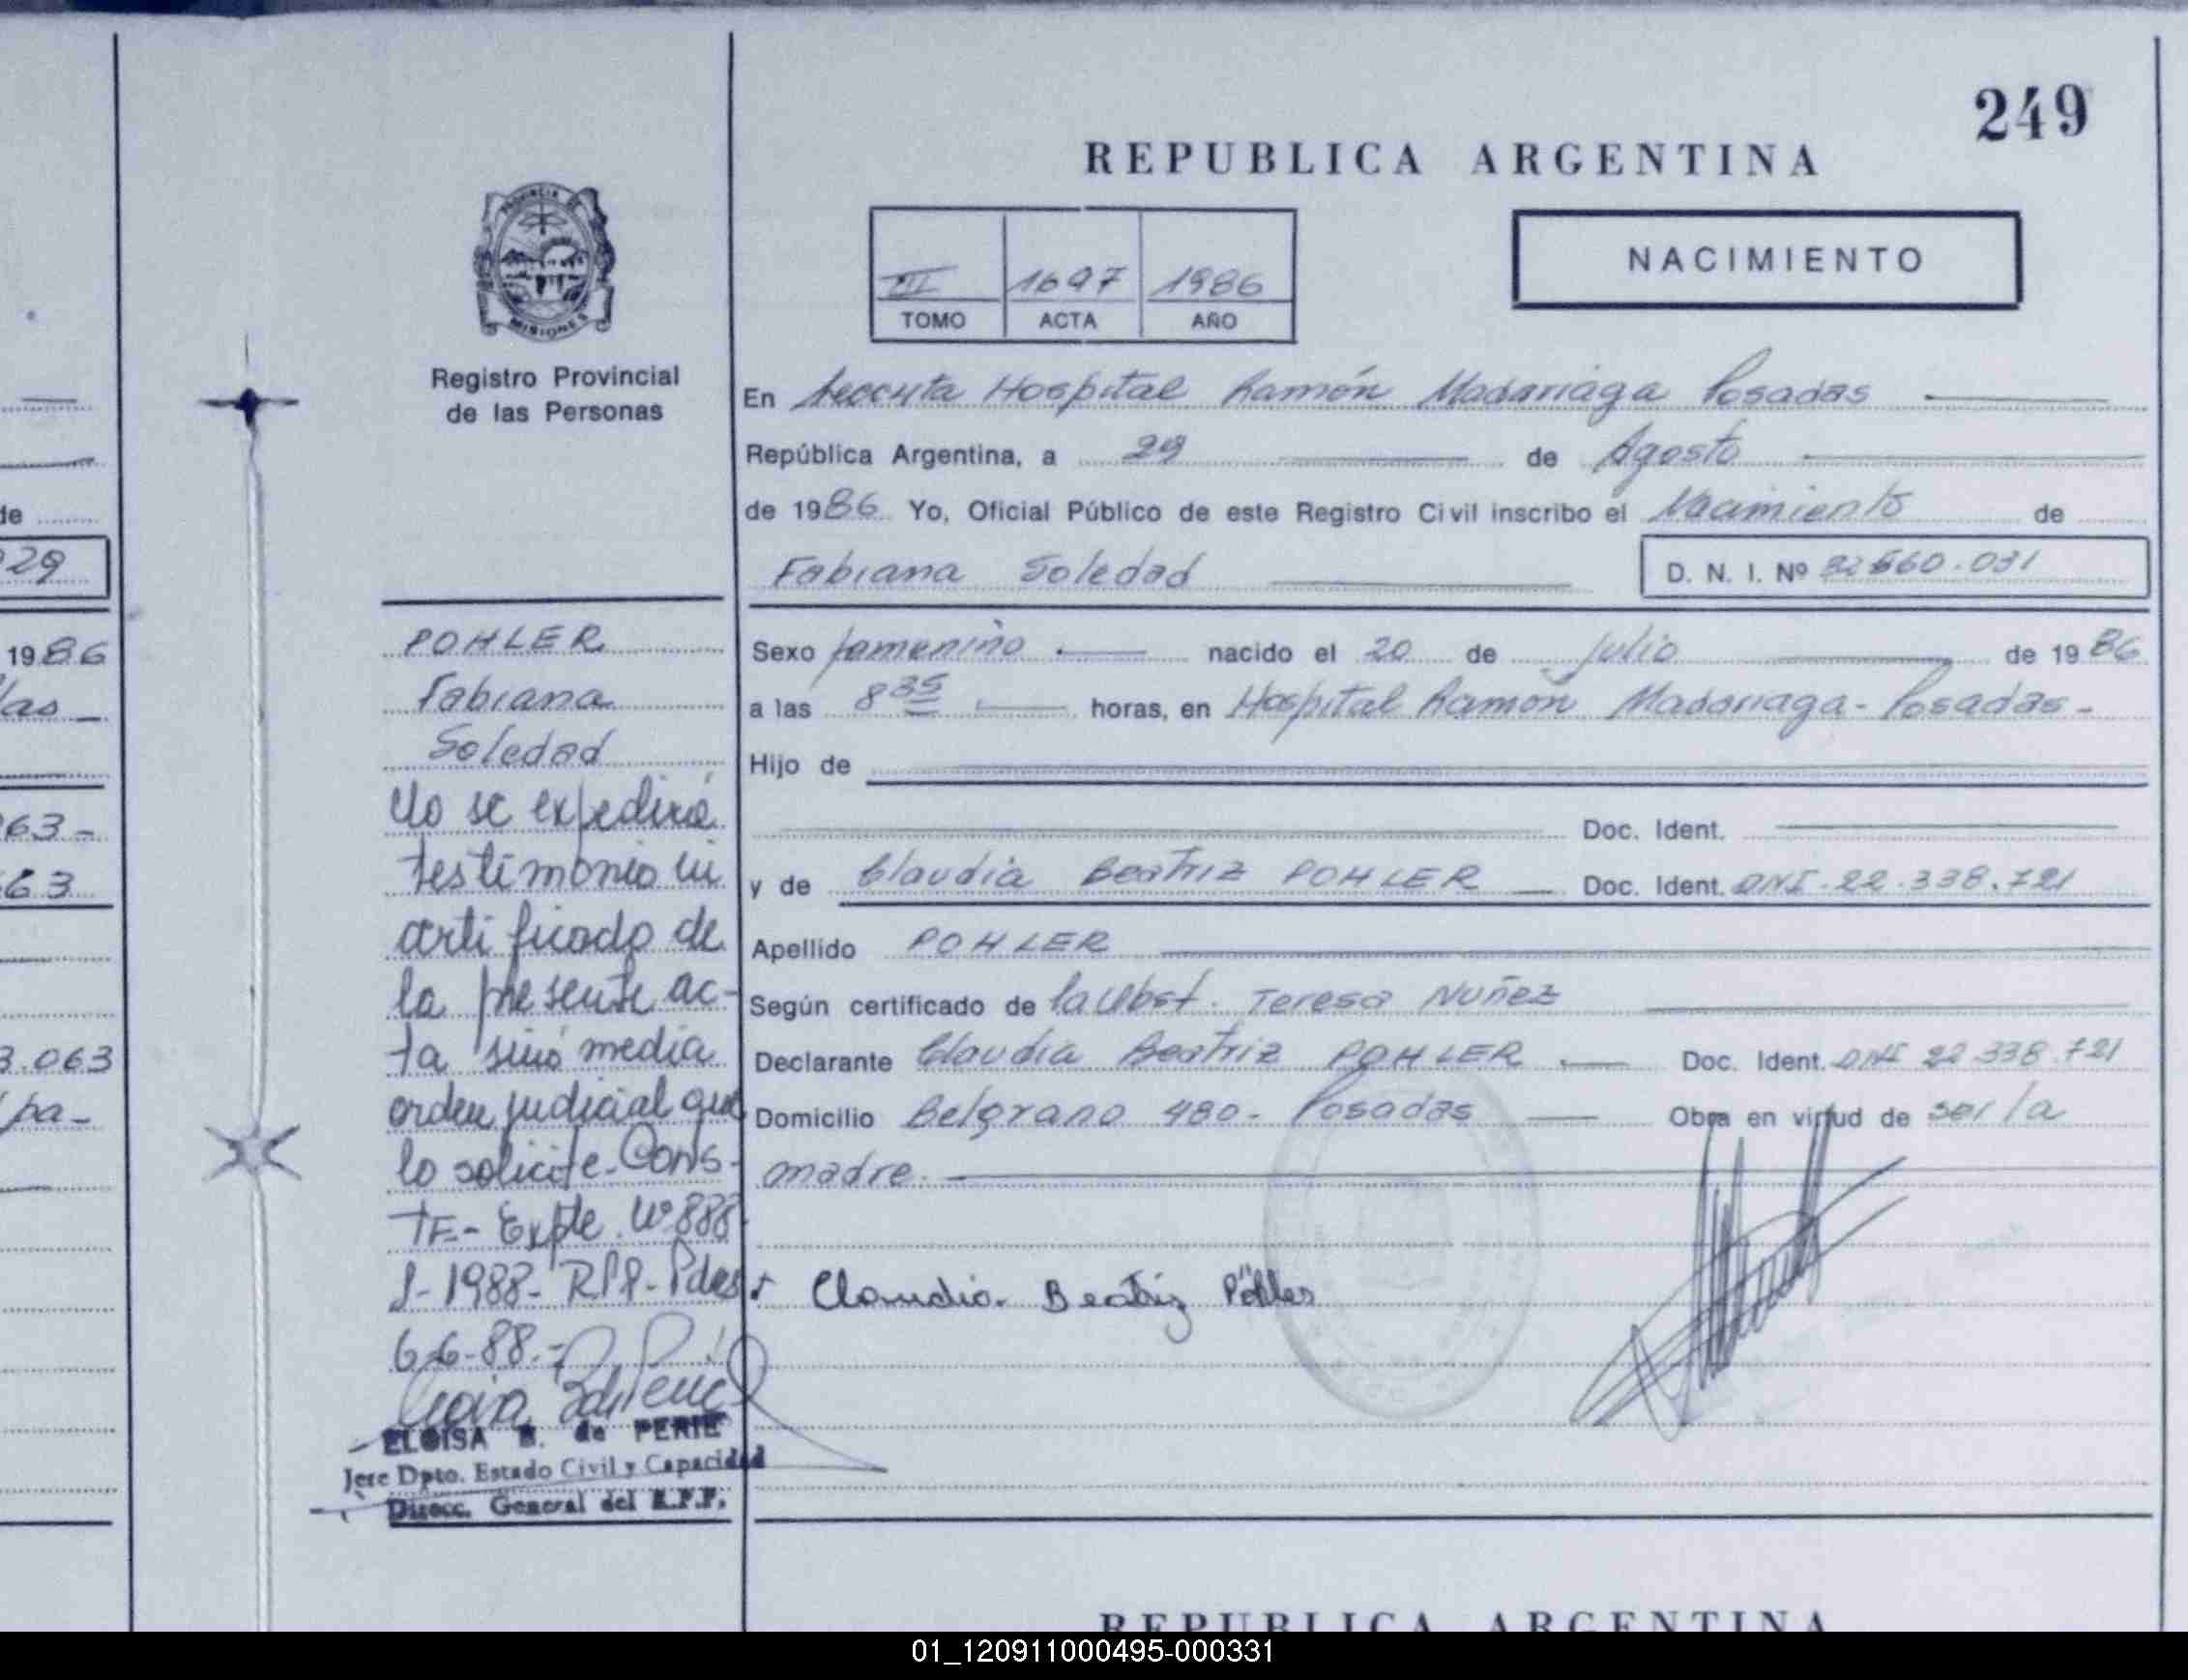 249
REPUBLICA ARGENTINA
NACIMIENTO
III 1697 1986
TOMO ACTA AÑO
PROVINCIA DE
MISIONES
Registro Provincial
de las Personas
En Hospital Ramón Madariaga Posadas
República Argentina, a 29 de Agosto
de 1986 Yo, Oficial Público de este Registro Civil inscribo el Nacimiento de
Fabiana Soledad
D. N. I. Nº 32660.031
Sexo femenino nacido el 20 de Julio de 1986
a las 8 35 horas, en Hospital Ramón Madariaga - Posadas -
Hijo de
Doc. Ident.
y de Claudia Beatriz POHLER Doc. Ident. DNI. 22.338.721
Apellido POHLER
Según certificado de la Obst. Teresa Nuñez
Declarante Claudia Beatriz POHLER Doc. Ident. DNI 22 338.721
Domicilio Belgrano 480 - Posadas Obra en virtud de ser la
madre.
Claudia Beatriz Pöhler
POHLER
Fabiana
Soledad
No se expedirá
testimonio ni
certificado de
la presente ac-
ta sinó media
orden judicial que
lo solicite - Cons-
TE - Expte. Nº 888
1988 - RPP - Pdas
6-6-88.-
ELOISA B. de PERIE
Jefe Dpto. Estado Civil y Capacidad
Direcc. General del R.P.P.
de
29
1986
las -
63 -
63
3.063
pa -
REPUBLICA ARGENTINA
01_120911000495-000331